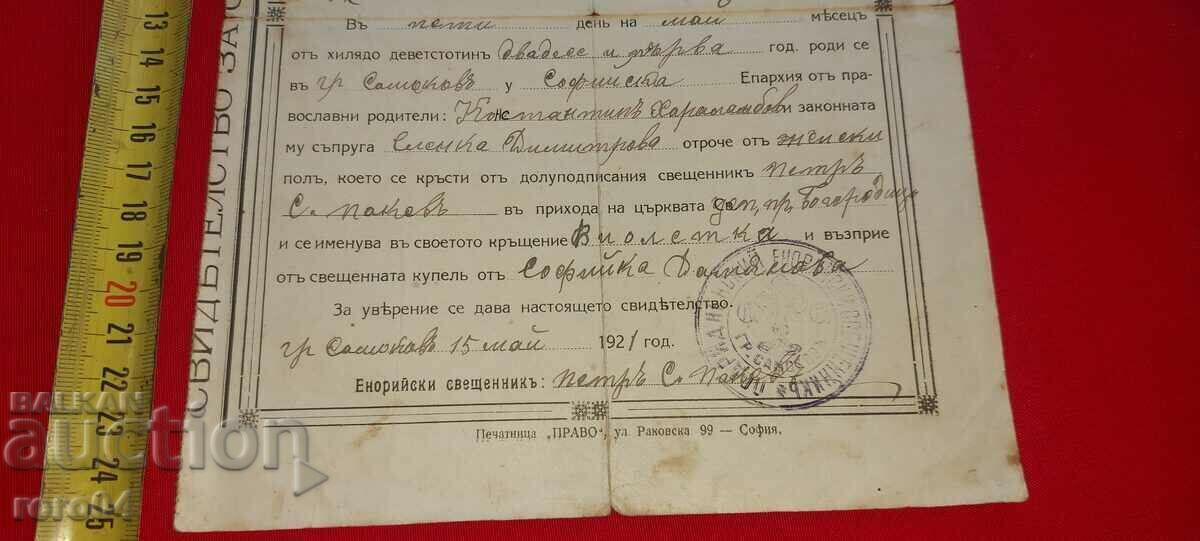 СВИДѢТЕЛСТВО ЗА
Въ пети день на май мѣсецъ
отъ хилядо деветстотинъ двадесе и първа год. роди се
въ гр Самоковъ у Софийста Епархия отъ пра-
вославни родители: Константинъ Хараламбов и законната
му съпруга Еленка Димитрова отроче отъ женски
полъ, което се кръсти отъ долуподписания свещенникъ петръ
С. поповъ въ прихода на църквата Св. пр. Богородица
и се именува въ своетото кръщение Виолетка и възприе
отъ свещенната купель отъ Софийка Дамянова
За увѣрение се дава настоящето свидѣтелство.
гр Самоковъ 15 май 1921 год.
Енорийски свещенникъ: петръ С. Попов
ГР. САМОК
Печатница „ПРАВО", ул Раковска 99 — София.
13
14
15
16
17
18
19
20
21
22
23
24
25
BALKAN
auction
roro94